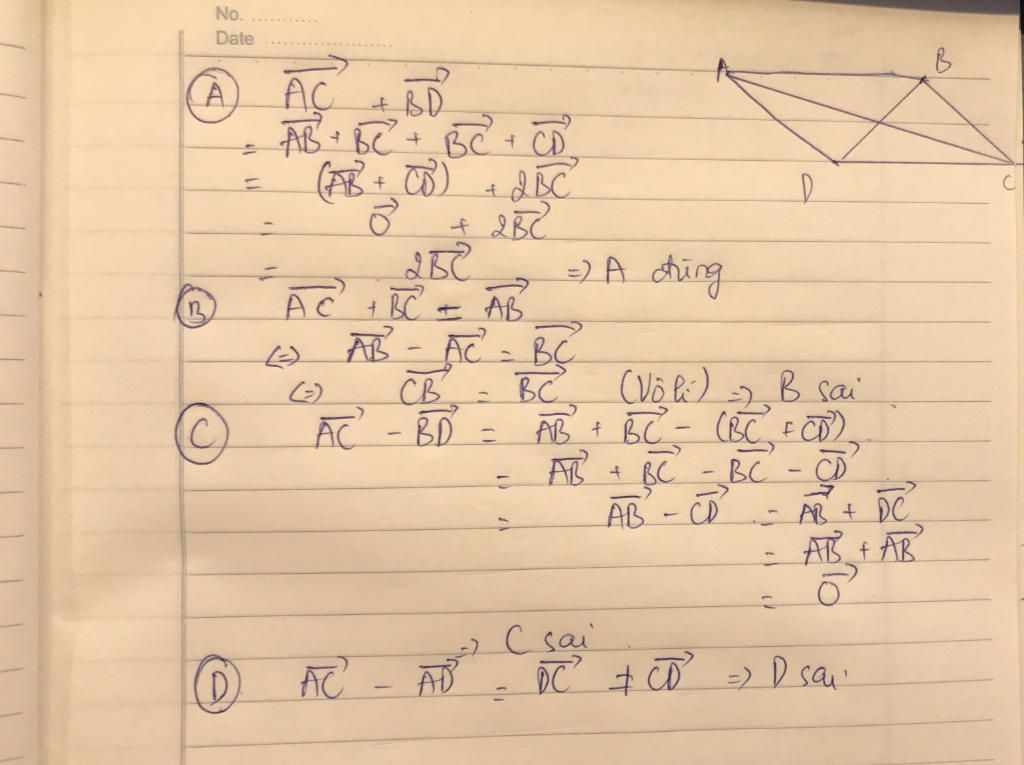 No. ...........
Date ......................
A B
D C
(A) $\overrightarrow{AC} + \overrightarrow{BD}$
$= \overrightarrow{AB} + \overrightarrow{BC} + \overrightarrow{BC} + \overrightarrow{CD}$
$= (\overrightarrow{AB} + \overrightarrow{CD}) + 2\overrightarrow{BC}$
$= \overrightarrow{O} + 2\overrightarrow{BC}$
$= 2\overrightarrow{BC}$ => A đúng
(B) $\overrightarrow{AC} + \overrightarrow{BC} = \overrightarrow{AB}$
(=) $\overrightarrow{AB} - \overrightarrow{AC} = \overrightarrow{BC}$
(=) $\overrightarrow{CB} = \overrightarrow{BC}$ (Vô lí) => B sai
(C) $\overrightarrow{AC} - \overrightarrow{BD} = \overrightarrow{AB} + \overrightarrow{BC} - (\overrightarrow{BC} + \overrightarrow{CD})$
$= \overrightarrow{AB} + \overrightarrow{BC} - \overrightarrow{BC} - \overrightarrow{CD}$
$= \overrightarrow{AB} - \overrightarrow{CD} = \overrightarrow{AB} + \overrightarrow{DC}$
$= \overrightarrow{AB} + \overrightarrow{AB}$
$= \overrightarrow{O}$
=> C sai
(D) $\overrightarrow{AC} - \overrightarrow{AD} = \overrightarrow{DC} \neq \overrightarrow{CD}$ => D sai.